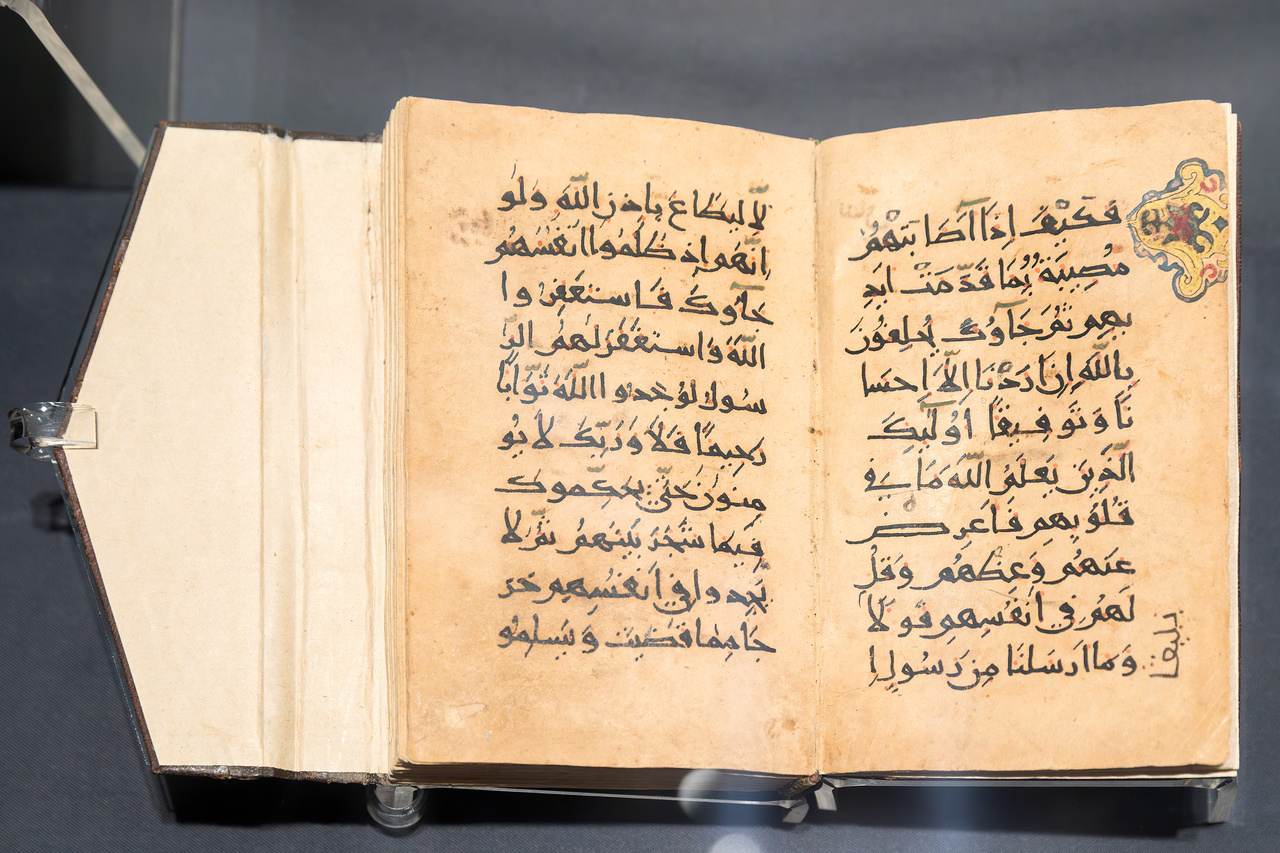 فَكَيْفَ اِذَا اَصَابَتْهُمْ
مُصِيبَةٌ بِمَا قَدَّمَتْ ايَدِ
يهِم ثُمَّ جَآوُكَ يَحلِفُونَ
بِاللّٰهِ اِن اَرَدْنَا اِلَّا اِحسَا
نًا وَتَوفِيقًا اُولَٰئِكَ
الَّذِينَ يَعلَمُ اللّٰهُ مَا فِي
قُلُوبِهِم فَاَعرِض
عَنهُم وَعِظهُم وَقُل
لَهُم فِي اَنفُسِهِم قَولًا
بليغا
وَمَا اَرسَلنَا مِن رَسُولٍ اِ
لَّا لِيُطَاعَ بِاِذنِ اللّٰهِ وَلَو
اَنَّهُم اِذ ظَلَمُوا اَنفُسَهُم
جَآوكَ فَاستَغفَرُوا
اللّٰهَ وَاستَغفَرَ لَهُمُ الرَّ
سُولُ لَوَجَدُوا اللّٰهَ تَوَّابًا
رَحِيمًا فَلَا وَرَبِّكَ لَا يُو
مِنُونَ حَتّى يُحَكِّموكَ
فِيمَا شَجَرَ بَينَهُم ثُمَّ لَا
يَجِدوا فِي اَنفُسِهِم حَرَ
جًا مِمَّا قَضَيتَ وَيُسَلِّمُو